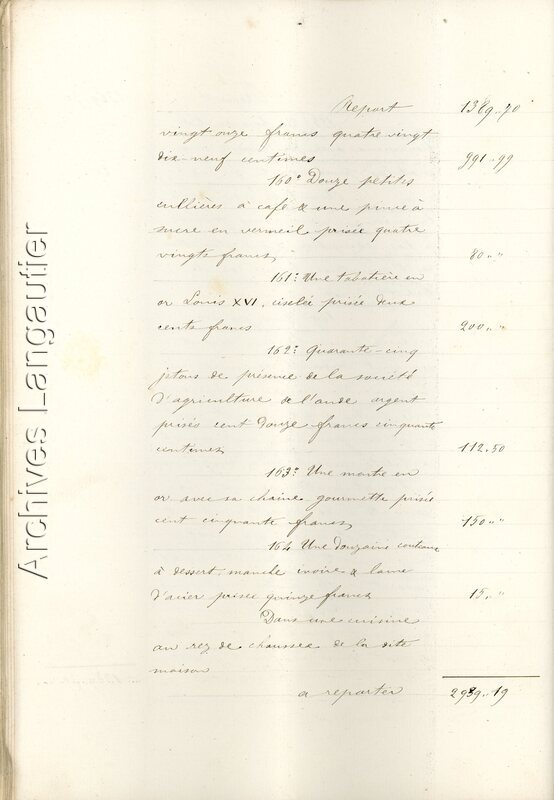 Report 1389.. 70
vingt onze francs quatre vingt
dix-neuf centimes 991..99
160° Douze petites
cuillières à café & une pince à
sucre en vermeil prisée quatre
vingts francs, 80 " "
161° Une tabatière en
or Louis XVI, ciselée prisée deux
cents francs 200 " "
162° Quarante-cinq
jetons de présence de la société
d'agriculture de l'aude argent
prisés cent douze francs cinquante
centimes 112.50
163° Une montre en
or avec sa chaîne gourmette prisée
cent cinquante francs 150 " "
164 Une douzaine couteaux
à dessert, manche ivoire & lame
d'acier prisée quinze francs 15 " "
Dans une cuisine
au rez de chaussée de la dite
maison
a reporter 2939..19
Archives Langautier